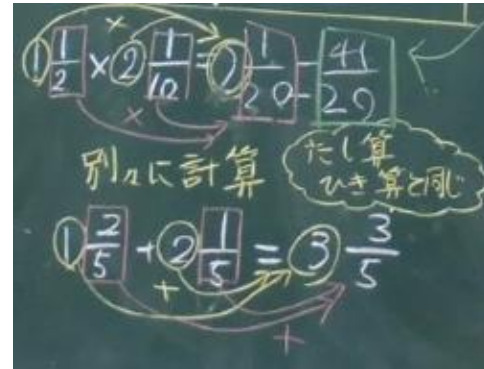 ×
1 1/2 × 2 1/10 = 2 1/20 = 41/20
×
別々に計算
たし算
ひき算と同じ
1 2/5 + 2 1/5 = 3 3/5
+
+